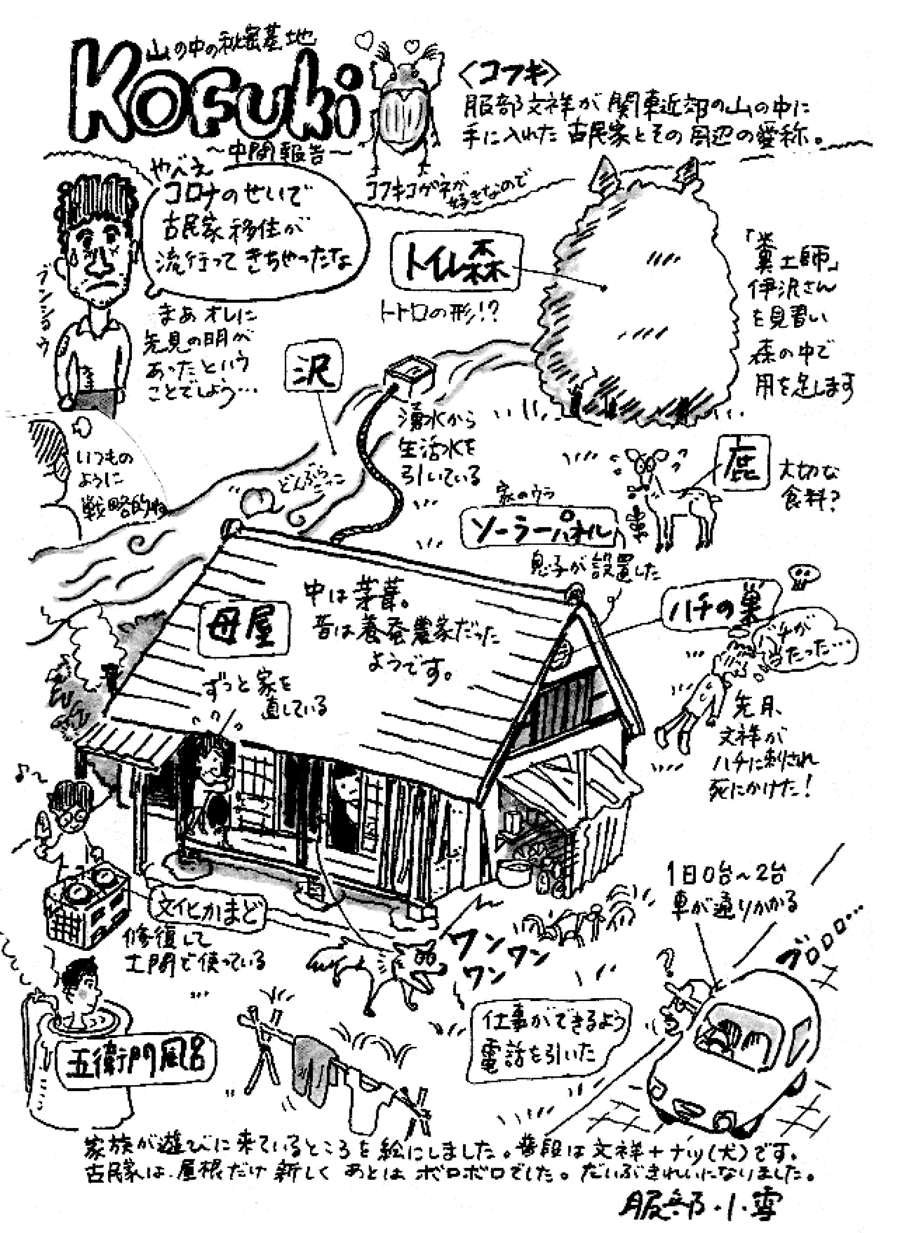 山の中の秘密基地
Kofuki
～中間報告～
コフキコガネが
好きなので
〈コフキ〉
服部文祥が関東近郊の山の中に
手に入れた古民家とその周辺の愛称。
やべえ
コロナのせいで
古民家移住が
流行ってきちゃったな
ブンショウ
まあオレに
先見の明が
あったという
ことでしょう…
いつもの
ように
戦略的ね
トイレ森
トトロの形!?
「糞土師」
伊沢さん
を見習い
森の中で
用を足します
沢
どんぶら
こっこ
湧水から
生活水を
引いている
鹿
大切な
食料?
家のウラ
ソーラーパネル
息子が設置した
母屋
中は茅葺。
昔は養蚕農家だった
ようです。
ずっと家を
直している
ハチの巣
バチが
当たった…
先月、
文祥が
ハチに刺され
死にかけた!
♪～
文化かまど
修復して
土間で使っている
ワンワン
ワン
1日0台～2台
車が通りかかる
ブロロロ…
?
仕事ができるよう
電話を引いた
五衛門風呂
家族が遊びに来ているところを絵にしました。普段は文祥+ナツ(犬)です。
古民家は、屋根だけ新しくあとはボロボロでした。だいぶきれいになりました。
服部・小雪